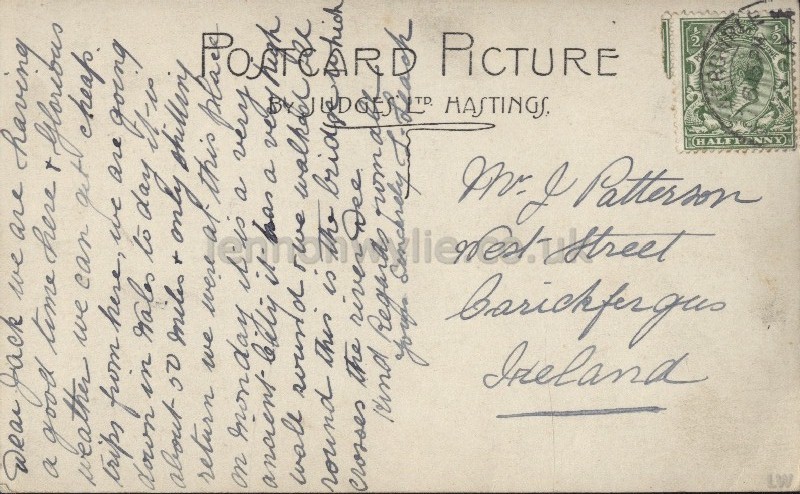 POSTCARD PICTURE
BY JUDGES LTD. HASTINGS.
HALFPENNY
Dear Jack we are having
a good time here & Glorious
weather we can get cheap
trips from here, we are going
down in Wales to day it is
about 50 miles & only shilling
return we were at this place
on monday it is a very
ancient City it has a very high
wall round & we walked all
round this is the bridge which
crosses the river Dee.
Kind Regards
Yours Sincerely
Mr J Patterson
West Street
Carickfergus
Ireland
lennonwylie.co.uk
LW